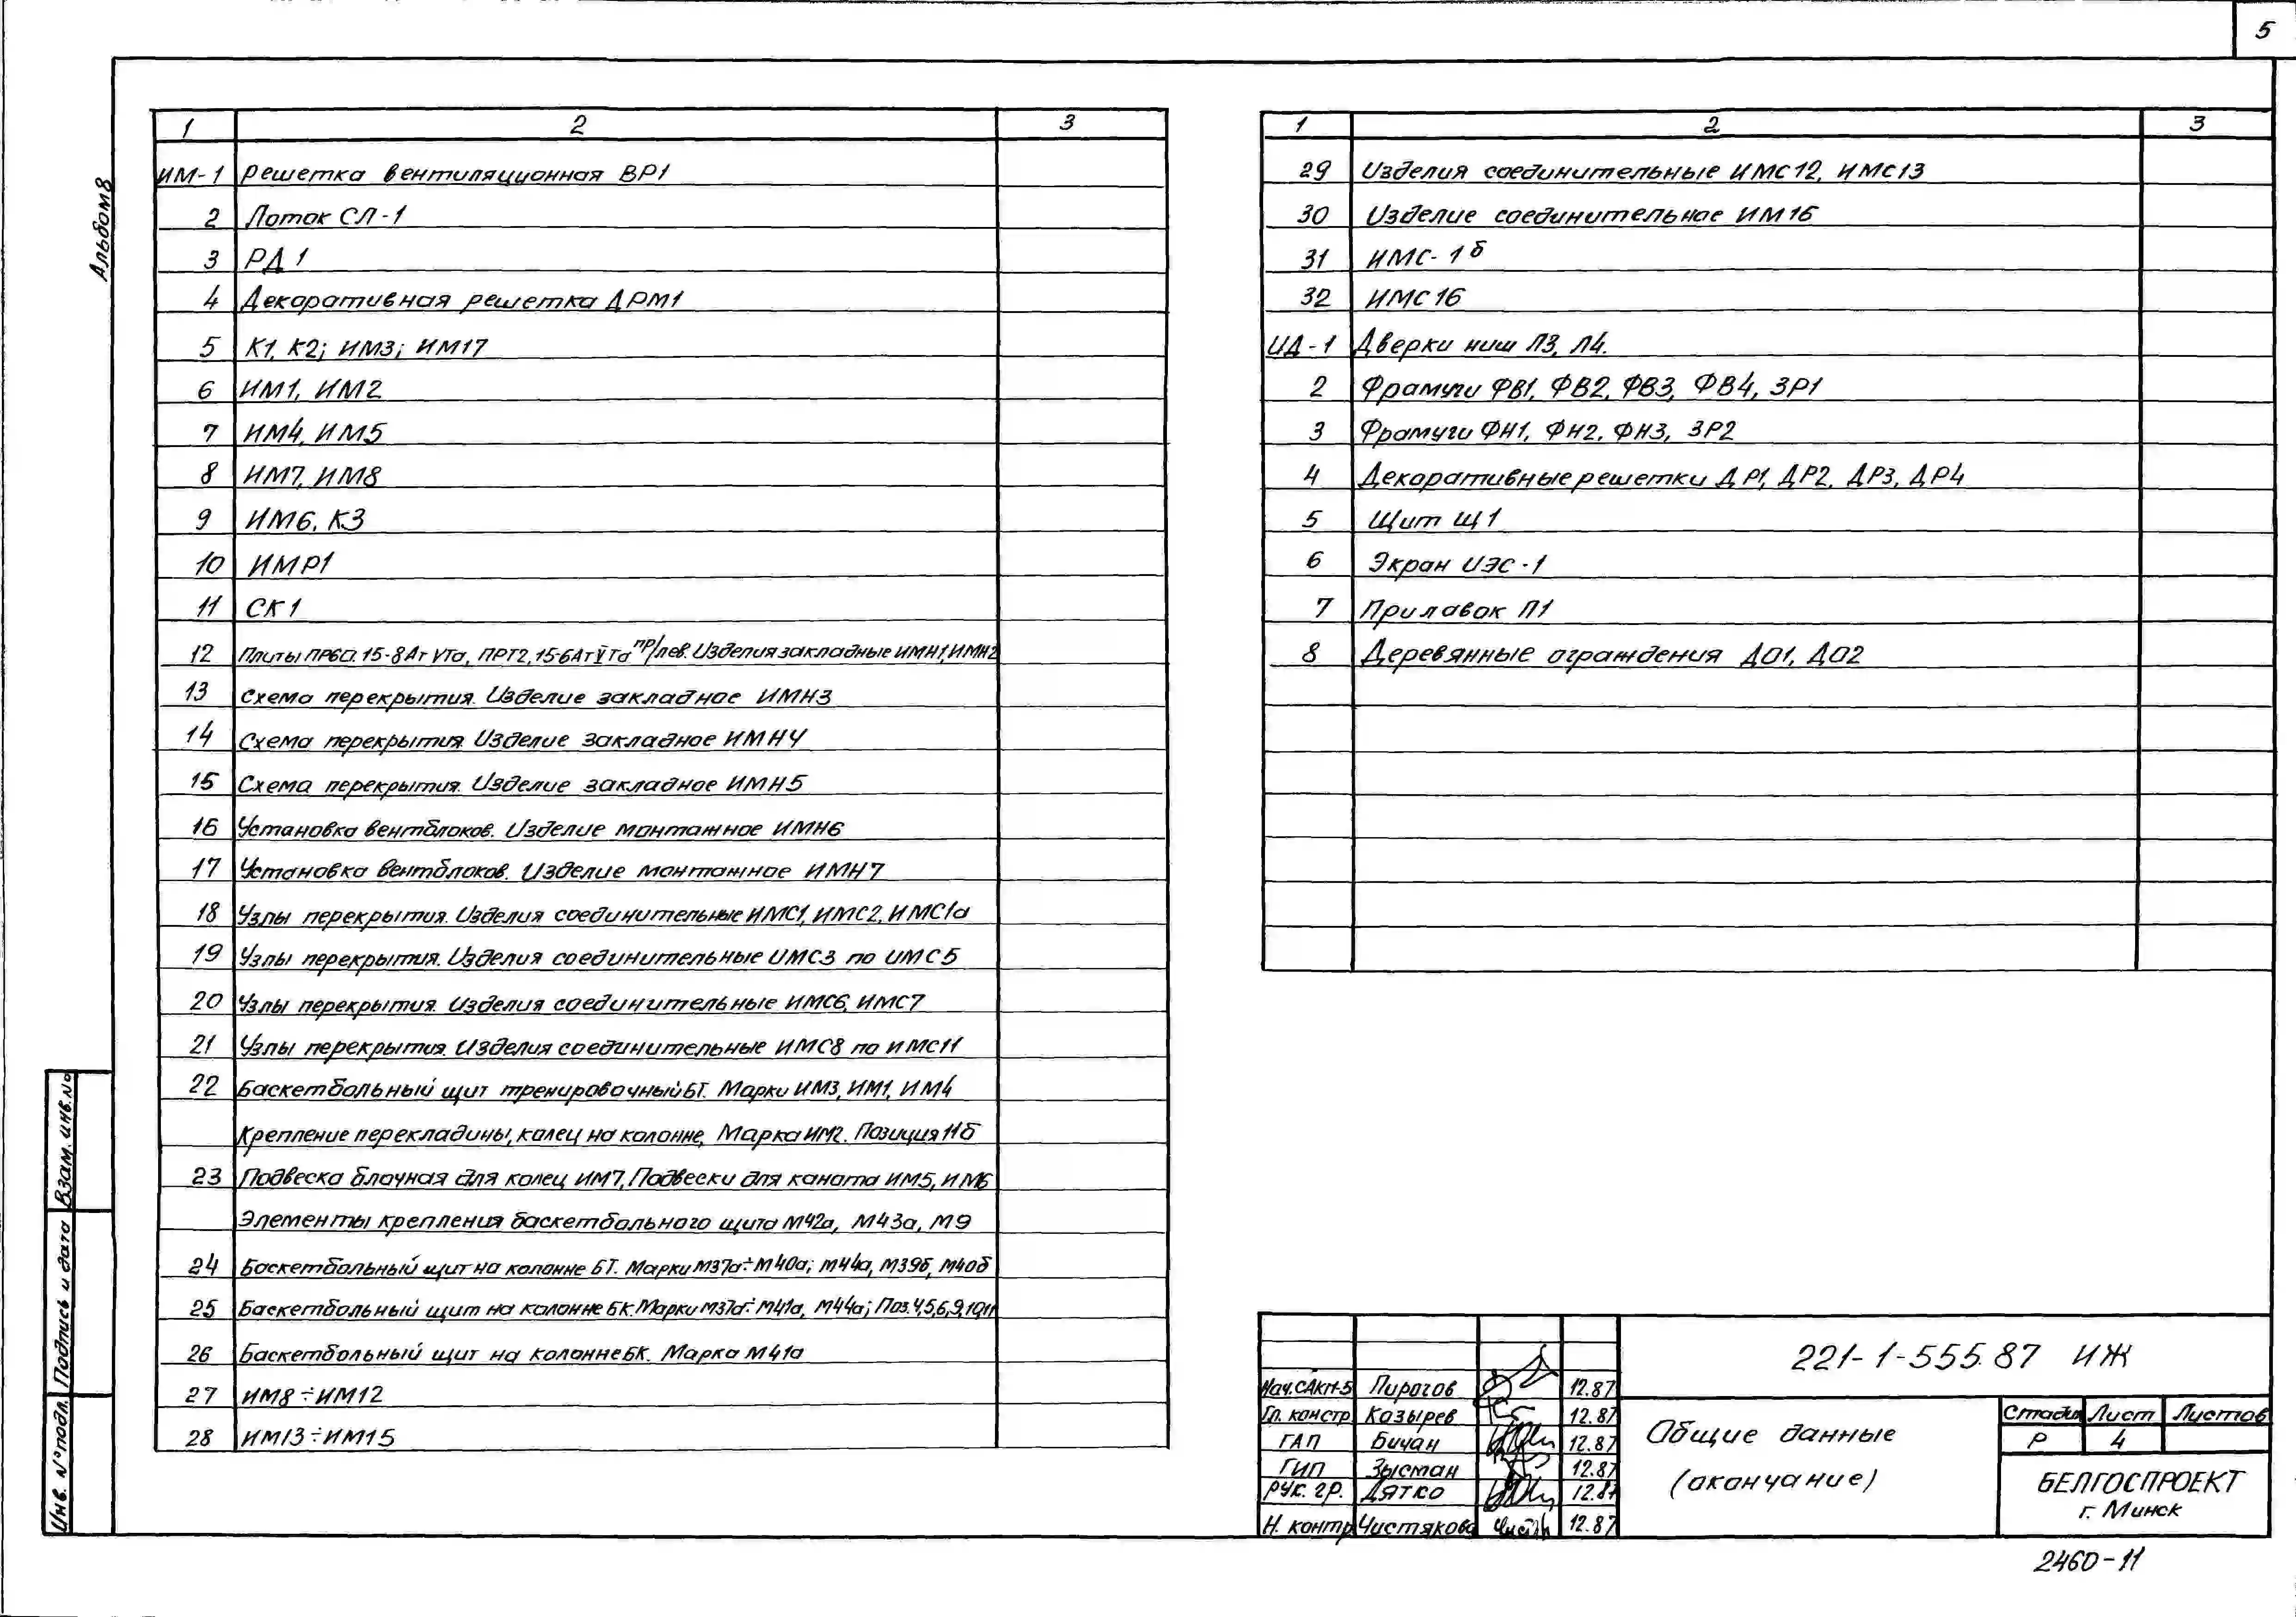 5
Альбом 8
1 2 3
ИМ-1 Решетка вентиляционная ВР1
2 Лоток СЛ-1
3 РД 1
4 Декоративная решетка ДРМ1
5 К1, К2; ИМ3; ИМ17
6 ИМ1, ИМ2
7 ИМ4, ИМ5
8 ИМ7, ИМ8
9 ИМ6, К3
10 ИМР1
11 СК1
12 Плиты ПР60.15-8АтVТа, ПРТ2,15-6АтVТа пр/лев. Изделия закладные ИМН1, ИМН2
13 Схема перекрытия. Изделие закладное ИМН3
14 Схема перекрытия. Изделие закладное ИМН4
15 Схема перекрытия. Изделие закладное ИМН5
16 Установка вентблоков. Изделие монтажное ИМН6
17 Установка вентблоков. Изделие монтажное ИМН7
18 Узлы перекрытия. Изделия соединительные ИМС1, ИМС2, ИМС1а
19 Узлы перекрытия. Изделия соединительные ИМС3 по ИМС5
20 Узлы перекрытия. Изделия соединительные ИМС6, ИМС7
21 Узлы перекрытия. Изделия соединительные ИМС8 по ИМС11
22 Баскетбольный щит тренировочный БТ. Марки ИМ3, ИМ1, ИМ4
Крепление перекладины, колец на колонне, Марка ИМ2. Позиция 11б
23 Подвеска блочная для колец ИМ7, Подвески для каната ИМ5, ИМ6
Элементы крепления баскетбольного щита М42а, М43а, М9
24 Баскетбольный щит на колонне БТ. Марки М37а÷М40а; М44а, М39б, М40б
25 Баскетбольный щит на колонне БК. Марки М37а÷М41а, М44а; Поз.4,5,6,9,10,11
26 Баскетбольный щит на колонне БК. Марка М41а
27 ИМ8÷ИМ12
28 ИМ13÷ИМ15
1 2 3
29 Изделия соединительные ИМС12, ИМС13
30 Изделие соединительное ИМ16
31 ИМС-1б
32 ИМС16
ИД-1 Дверки ниш Л3, Л4.
2 Фрамуги ФВ1, ФВ2, ФВ3, ФВ4, ЗР1
3 Фрамуги ФН1, ФН2, ФН3, ЗР2
4 Декоративные решетки ДР1, ДР2, ДР3, ДР4
5 Щит Щ1
6 Экран ИЭС-1
7 Прилавок П1
8 Деревянные ограждения ДО1, ДО2
Взам. инв. №
Подпись и дата
Инв. № подл.
Нач. САКМ-5 Пирогов 12.87
Гл. констр. Козырев 12.87
ГАП Бичан 12.87
ГИП Зысман 12.87
Рук. гр. Дятко 12.87
Н. контр Чистякова 12.87
221-1-555.87 ИЖ
Общие данные
(окончание)
Стадия Лист Листов
Р 4
БЕЛГОСПРОЕКТ
г. Минск
2460-11